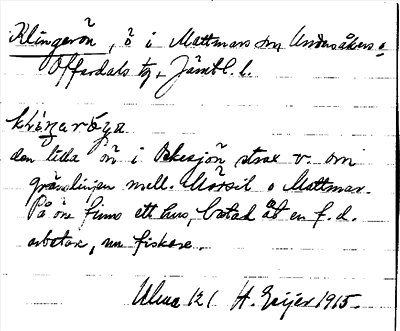 Klingerön, ö i Mattmars sn, Undersåkers o
Offerdals tg, Jämtl. l.
kliŋaröya
den lilla ön i Ockesjön strax v. om
gränslinjen mell. Mörsil o Mattmar.
På ön finns ett hus, bebott åt en f.d.
arbetare, nu fiskare.
H. Geijer 1915.